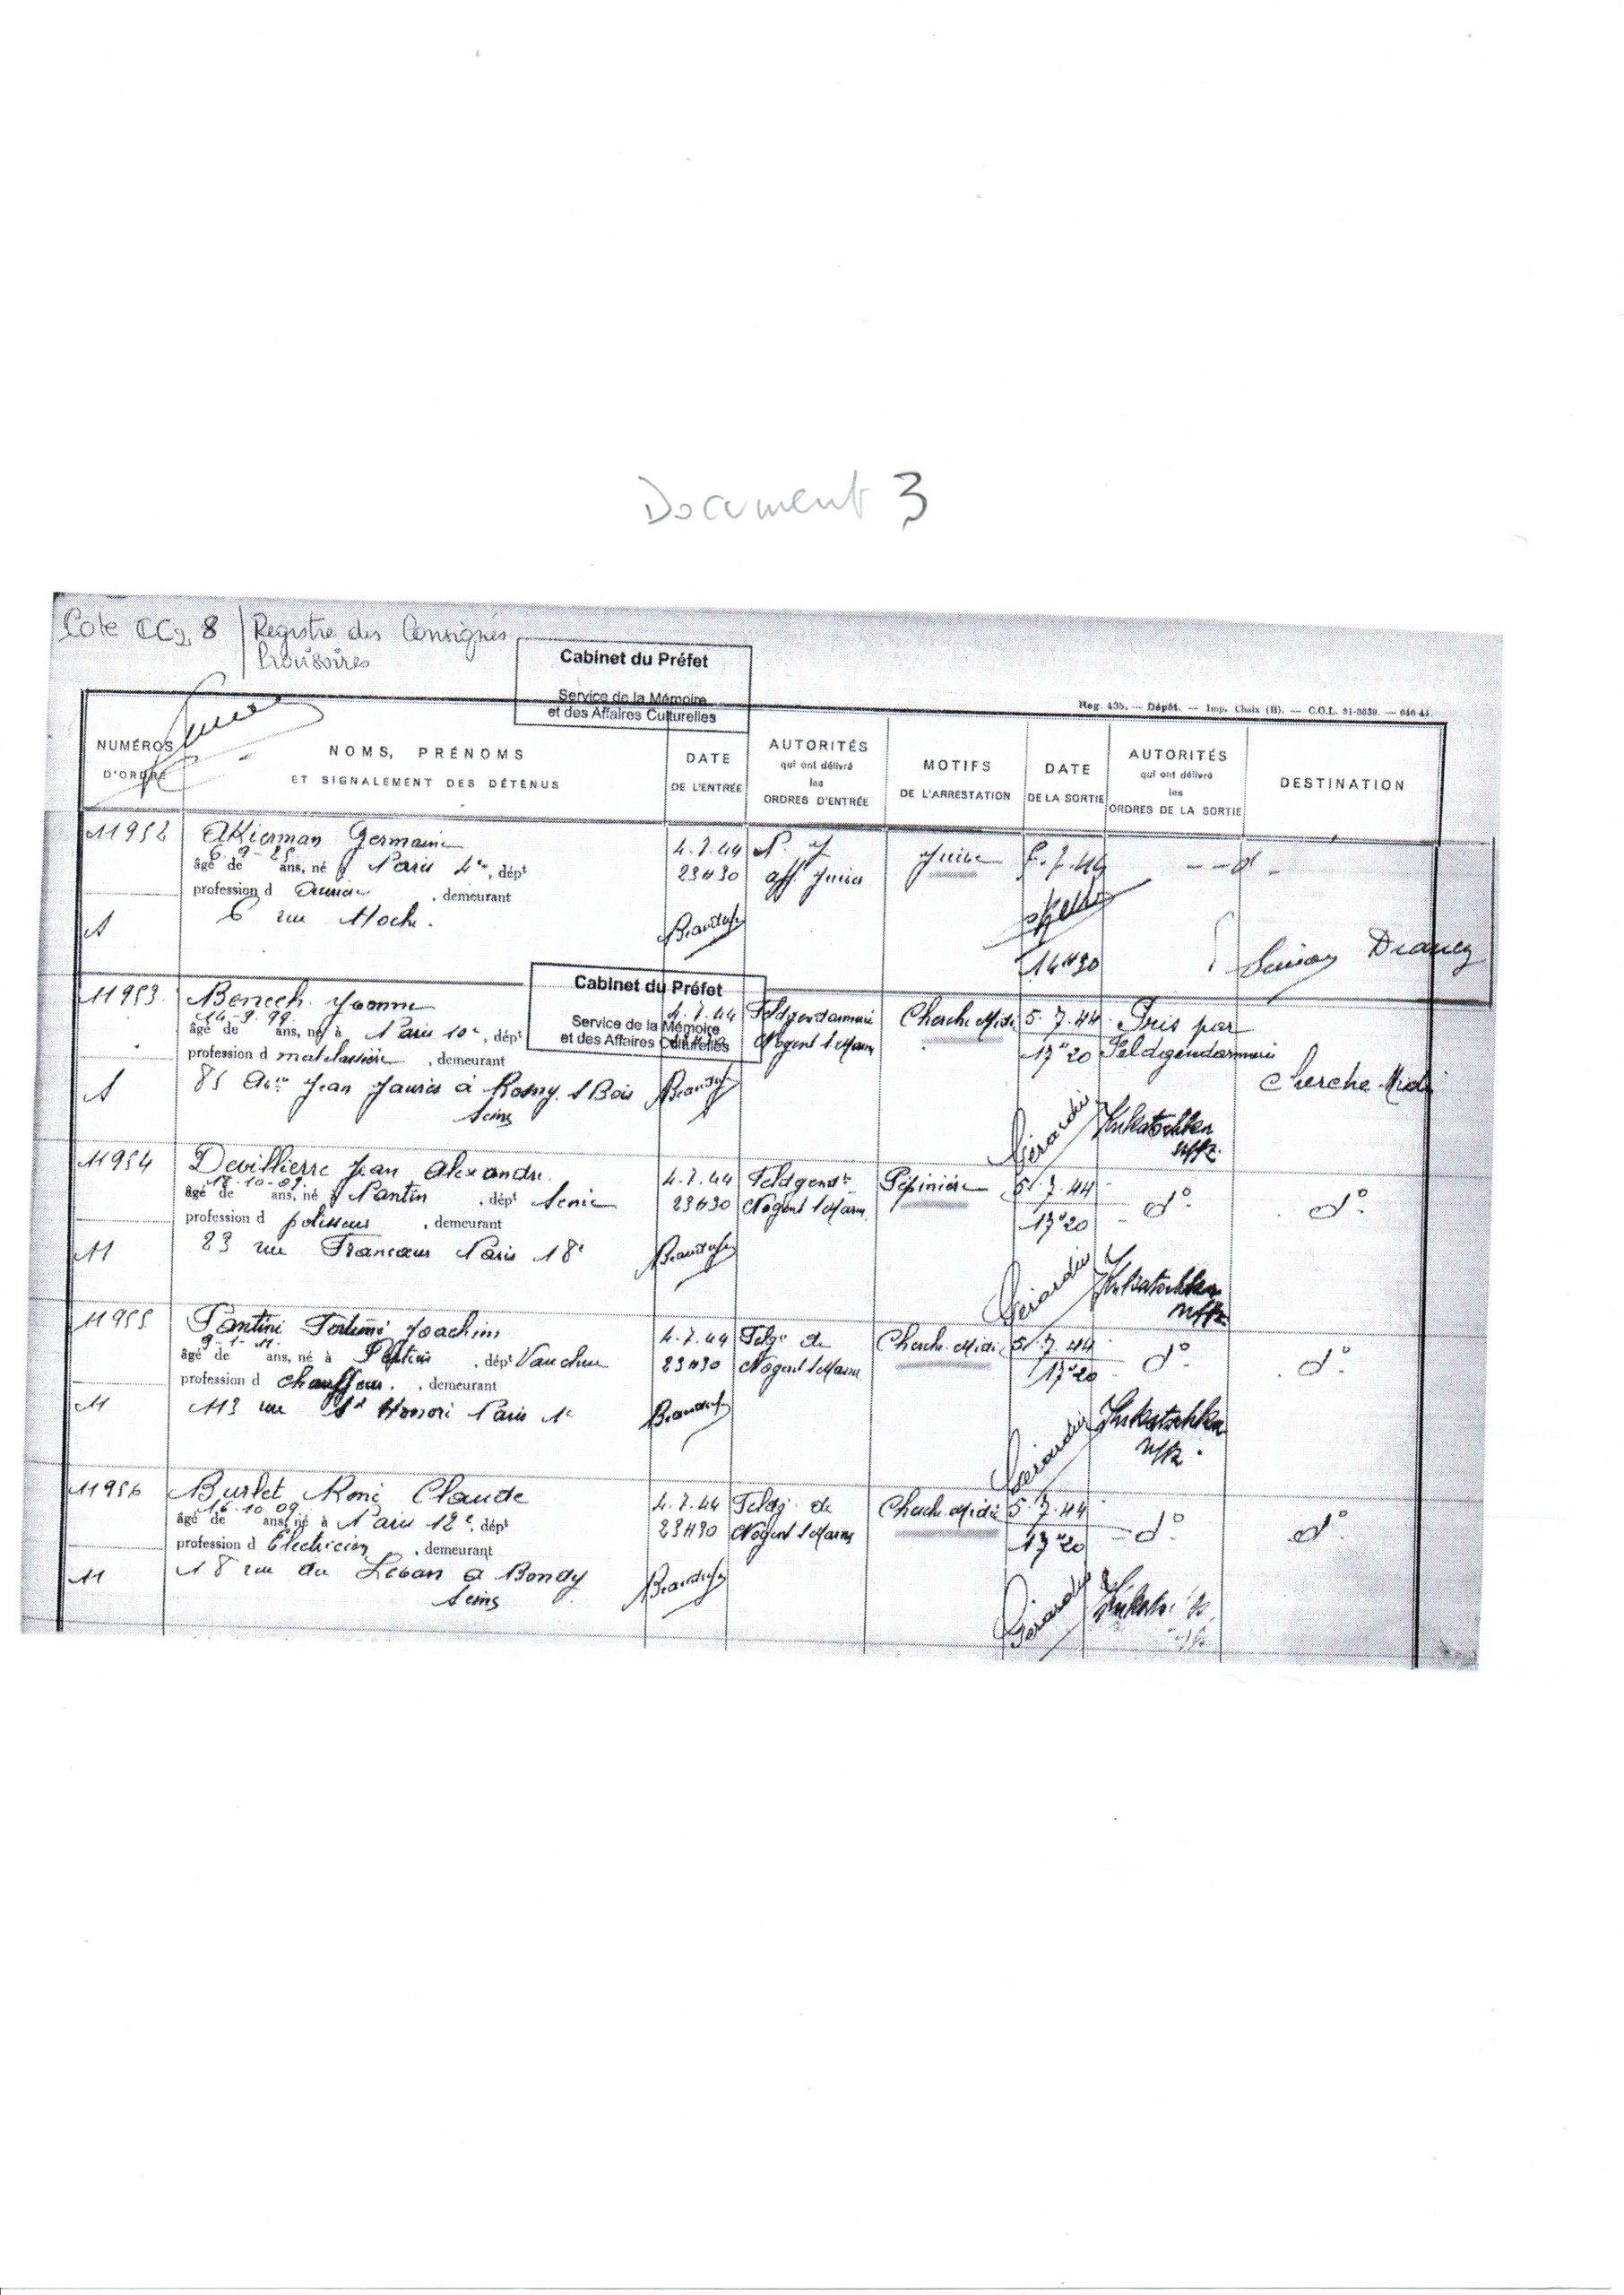 Document 3
Cote CC2, 8 Registre des Consignés
Provisoires
Cabinet du Préfet
Service de la Mémoire
et des Affaires Culturelles
Rég. 435. — Dépôt. — Imp. Chaix (B). — C.O.L. 31-3039. — 646-44.
NUMÉROS D'ORDRE
NOMS, PRÉNOMS ET SIGNALEMENT DES DÉTENUS
DATE DE L'ENTRÉE
AUTORITÉS qui ont délivré les ORDRES D'ENTRÉE
MOTIFS DE L'ARRESTATION
DATE DE LA SORTIE
AUTORITÉS qui ont délivré les ORDRES DE LA SORTIE
DESTINATION
11952 Akierman Germaine 4.7.44 P. J. Juive 5.7.44 d
âgé de 6-9-25 ans, né à Paris 4e, dépt 23H30 aff. juives
profession d , demeurant
6 rue Hoche. Beaudufe
1 14H30 Drancy
Cabinet du Préfet
Service de la Mémoire
et des Affaires Culturelles
11953 Benech Yvonne 4.7.44 Feldgendarmerie Cherche Midi 5.7.44 Pris par
âgé de 14-9-99 ans, né à Paris 10e, dépt Nogent s/Marne 17H20 Feldgendarmerie
profession d matelassière, demeurant Cherche Midi
1 85 Ave Jean Jaurès à Rosny s/Bois Beaudufe
Seine Girardin
11954 Devillierre Jean Alexandre 4.7.44 Feldgend Pépinière 5.7.44
âgé de 18-10-09 ans, né à Pantin, dépt Seine 23H30 Nogent s/Marne 17H20 d° d°
profession d polisseur, demeurant
11 23 rue Francœur Paris 18e Beaudufe Girardin
11955 Pantini Fortuné Joachim 4.7.44 Feldg de Cherche Midi 5.7.44 d° d°
âgé de 9-1-11 ans, né à Pertuis, dépt Vaucluse 23H30 Nogent s/Marne 17H20
profession d chauffeur, demeurant
11 113 rue St Honoré Paris 1e Beaudufe Girardin
11956 Burlet René Claude 4.7.44 Feldg. de Cherche Midi 5.7.44
âgé de 16-10-09 ans, né à Paris 12e, dépt 23H30 Nogent s/Marne 17H20 d° d°
profession d Electricien, demeurant
11 18 rue du Liban à Bondy Beaudufe
Seine Girardin